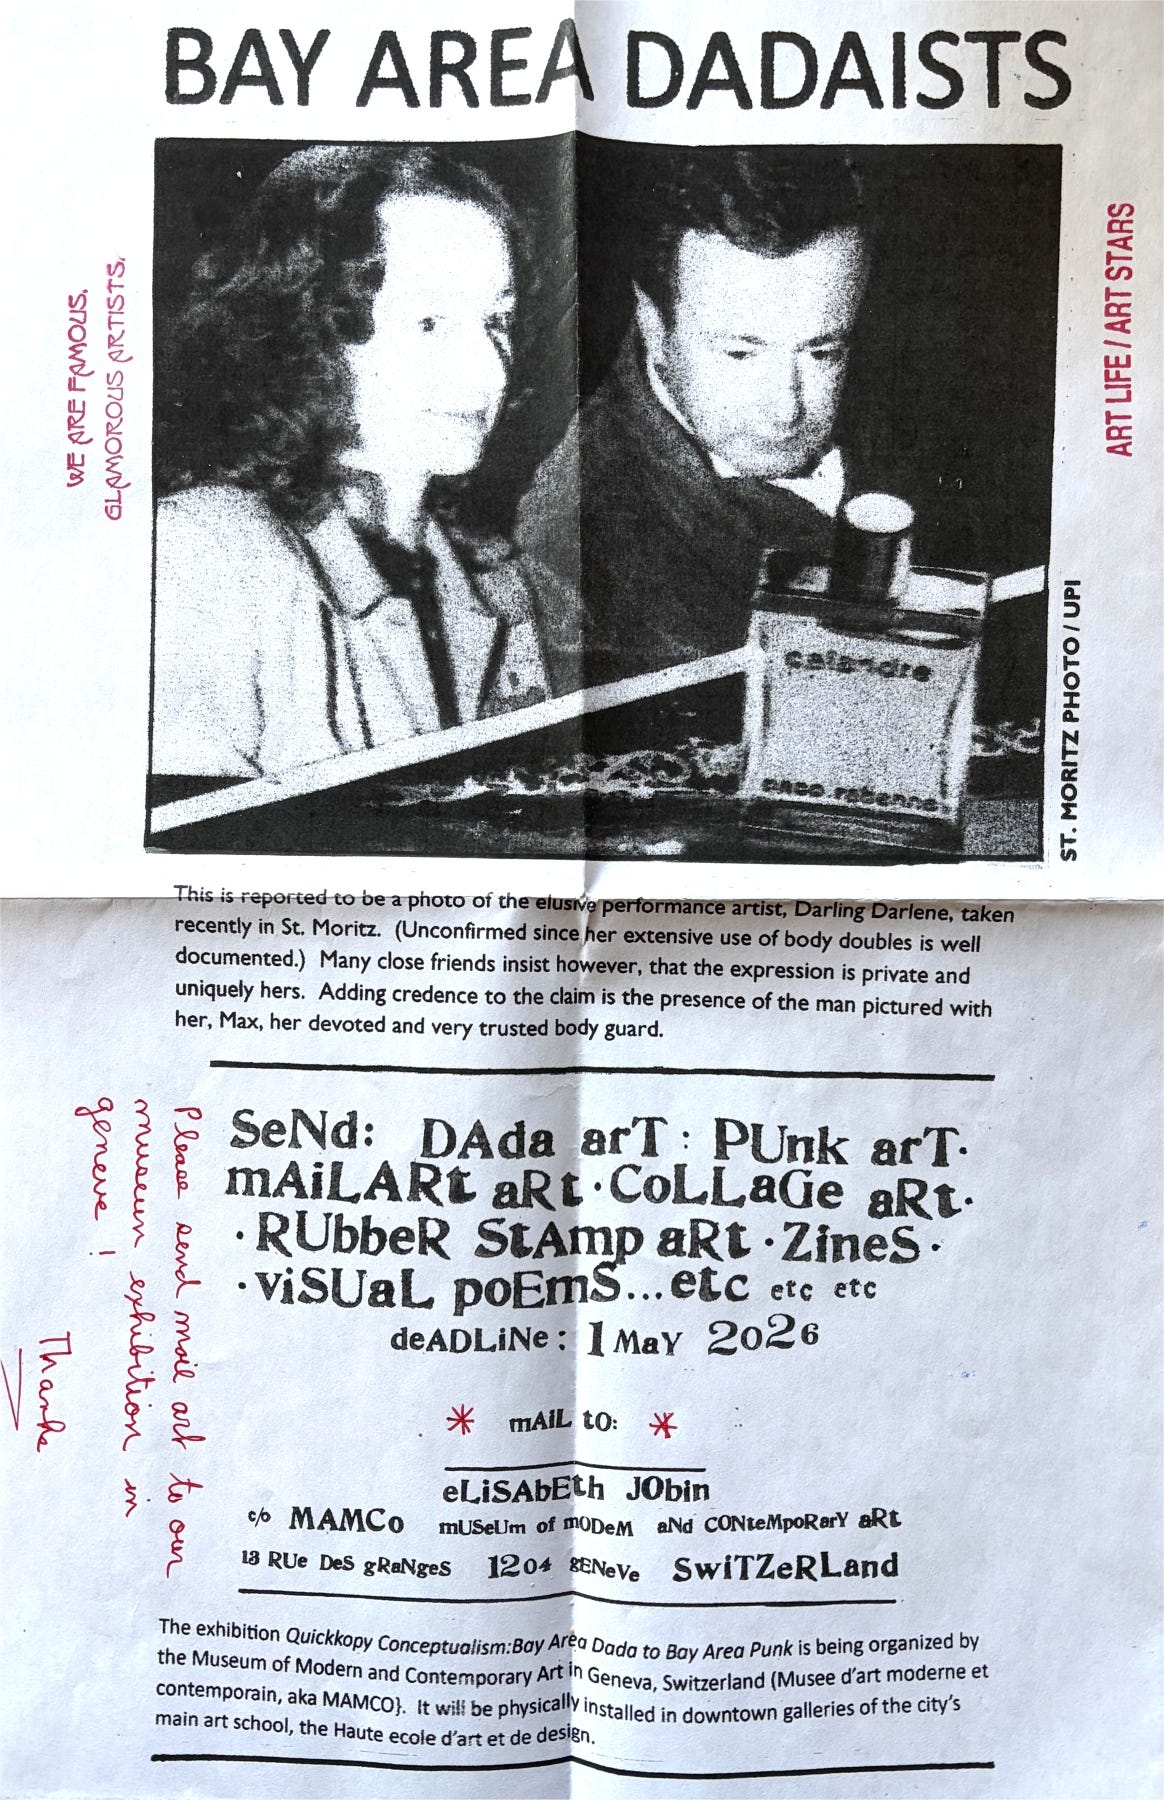 BAY AREA DADAISTS
WE ARE FAMOUS,
GLAMOROUS ARTISTS,
ART LIFE / ART STARS
calandre
paco rabanne
ST. MORITZ PHOTO / UPI
This is reported to be a photo of the elusive performance artist, Darling Darlene, taken
recently in St. Moritz. (Unconfirmed since her extensive use of body doubles is well
documented.) Many close friends insist however, that the expression is private and
uniquely hers. Adding credence to the claim is the presence of the man pictured with
her, Max, her devoted and very trusted body guard.
SeNd: DAda arT : PUnk arT·
mAiLARt aRt · CoLLaGe aRt·
· RUbbeR StAmp aRt · ZineS ·
· viSUaL poEmS...etc etc etc
deADLiNe : 1 MaY 2026
* mAiL tO: *
eLiSAbEth JObin
c/o MAMCo mUSeUm of mODeM aNd CONteMpoRarY aRt
13 RUe DeS gRaNgeS 1204 gENeVe SwiTZeRLand
Please send mail art to our
museum exhibition in
geneve !
Thanks
The exhibition Quickkopy Conceptualism:Bay Area Dada to Bay Area Punk is being organized by
the Museum of Modern and Contemporary Art in Geneva, Switzerland (Musee d'art moderne et
contemporain, aka MAMCO}. It will be physically installed in downtown galleries of the city's
main art school, the Haute ecole d'art et de design.